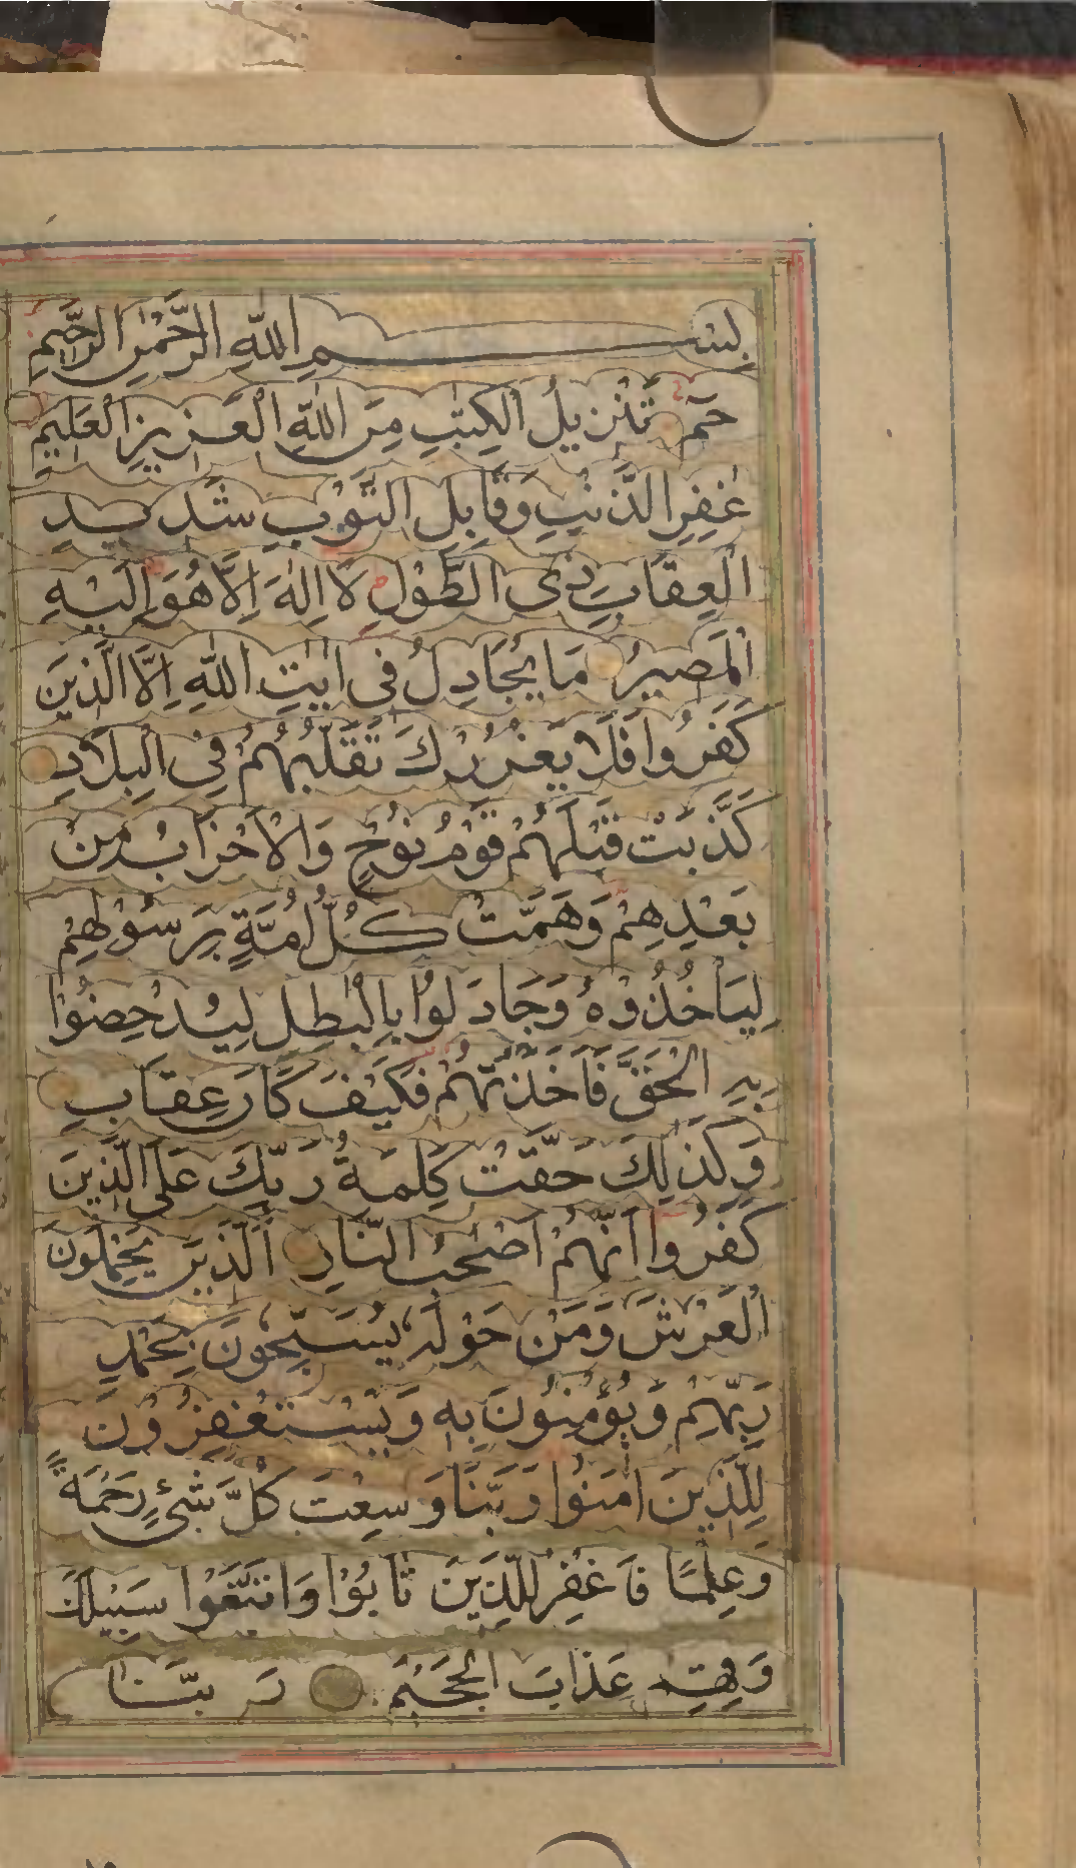 بِسْمِ اللّٰهِ الرَّحْمٰنِ الرَّحِيْمِ
حٰمٓ تَنْزِيلُ الْكِتٰبِ مِنَ اللّٰهِ الْعَزِيزِ الْعَلِيْمِ
غَفِرِ الذَّنْبِ وَقَابِلِ التَّوْبِ شَدِيدِ
الْعِقَابِ ذِى الطَّوْلِ لَا اِلٰهَ اِلَّا هُوَ اِلَيْهِ
الْمَصِيرُ مَا يُجَادِلُ فِى اٰيٰتِ اللّٰهِ اِلَّا الَّذِينَ
كَفَرُوا فَلَا يَغْرُرْكَ تَقَلُّبُهُمْ فِى الْبِلَادِ
كَذَّبَتْ قَبْلَهُمْ قَوْمُ نُوْحٍ وَالْاَحْزَابُ مِنْ
بَعْدِهِمْ وَهَمَّتْ كُلُّ اُمَّةٍ بِرَسُوْلِهِمْ
لِيَاْخُذُوْهُ وَجَادَلُوْا بِالْبٰطِلِ لِيُدْحِضُوْا
بِهِ الْحَقَّ فَاَخَذْتُهُمْ فَكَيْفَ كَانَ عِقَابِ
وَكَذٰلِكَ حَقَّتْ كَلِمَةُ رَبِّكَ عَلَى الَّذِينَ
كَفَرُوا اَنَّهُمْ اَصْحٰبُ النَّارِ اَلَّذِيْنَ يَحْمِلُوْنَ
الْعَرْشَ وَمَنْ حَوْلَهٗ يُسَبِّحُوْنَ بِحَمْدِ
رَبِّهِمْ وَيُؤْمِنُوْنَ بِهٖ وَيَسْتَغْفِرُوْنَ
لِلَّذِيْنَ اٰمَنُوْا رَبَّنَا وَسِعْتَ كُلَّ شَىْءٍ رَحْمَةً
وَعِلْمًا فَاغْفِرْ لِلَّذِيْنَ تَابُوْا وَاتَّبَعُوْا سَبِيْلَكَ
وَقِهِمْ عَذَابَ الْجَحِيْمِ رَبَّنَا